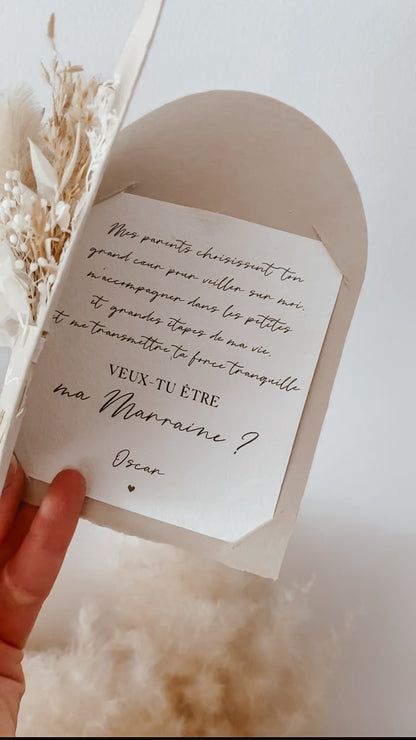 Mes parents choisissent ton
grand cœur pour veiller sur moi,
m'accompagner dans les petites
et grandes étapes de ma vie.
et me transmettre ta force tranquille
VEUX-TU ÊTRE
ma Marraine ?
Oscar